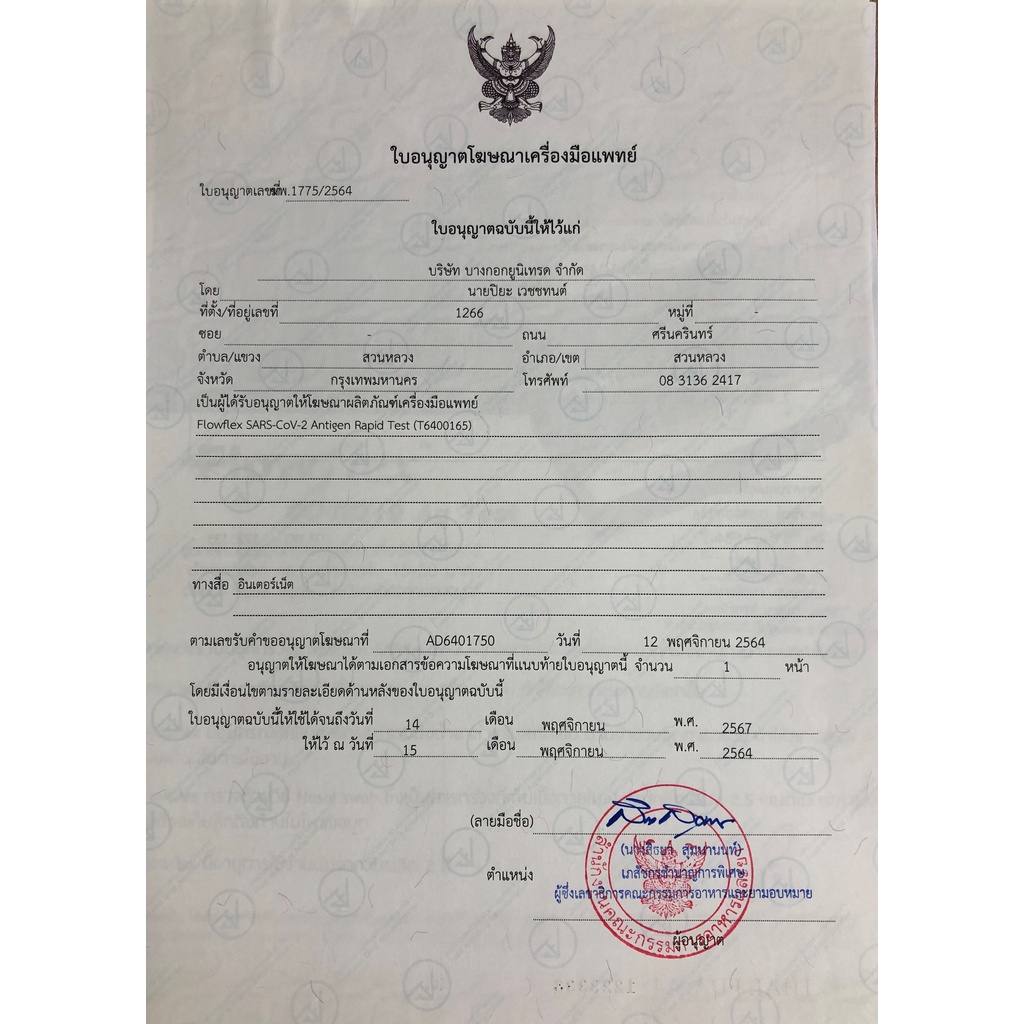 ใบอนุญาตโฆษณาเครื่องมือแพทย์
ใบอนุญาตเลขที่ ฆพ.1775/2564
ใบอนุญาตฉบับนี้ให้ไว้แก่
บริษัท บางกอกยูนิเทรด จำกัด
โดย นายปิยะ เวชชทนต์
ที่ตั้ง/ที่อยู่เลขที่ 1266 หมู่ที่ -
ซอย - ถนน ศรีนครินทร์
ตำบล/แขวง สวนหลวง อำเภอ/เขต สวนหลวง
จังหวัด กรุงเทพมหานคร โทรศัพท์ 08 3136 2417
เป็นผู้ได้รับอนุญาตให้โฆษณาผลิตภัณฑ์เครื่องมือแพทย์
Flowflex SARS-CoV-2 Antigen Rapid Test (T6400165)
ทางสื่อ อินเตอร์เน็ต
ตามเลขรับคำขออนุญาตโฆษณาที่ AD6401750 วันที่ 12 พฤศจิกายน 2564
อนุญาตให้โฆษณาได้ตามเอกสารข้อความโฆษณาที่แนบท้ายใบอนุญาตนี้ จำนวน 1 หน้า
โดยมีเงื่อนไขตามรายละเอียดด้านหลังของใบอนุญาตฉบับนี้
ใบอนุญาตฉบับนี้ให้ใช้ได้จนถึงวันที่ 14 เดือน พฤศจิกายน พ.ศ. 2567
ให้ไว้ ณ วันที่ 15 เดือน พฤศจิกายน พ.ศ. 2564
(ลายมือชื่อ)
สุมนานนท์)
ตำแหน่ง เภสัชกรชำนาญการพิเศษ
ผู้ซึ่งเลขาธิการคณะกรรมการอาหารและยามอบหมาย
ผู้อนุญาต
สำนักงานคณะกรรมการอาหารและยา